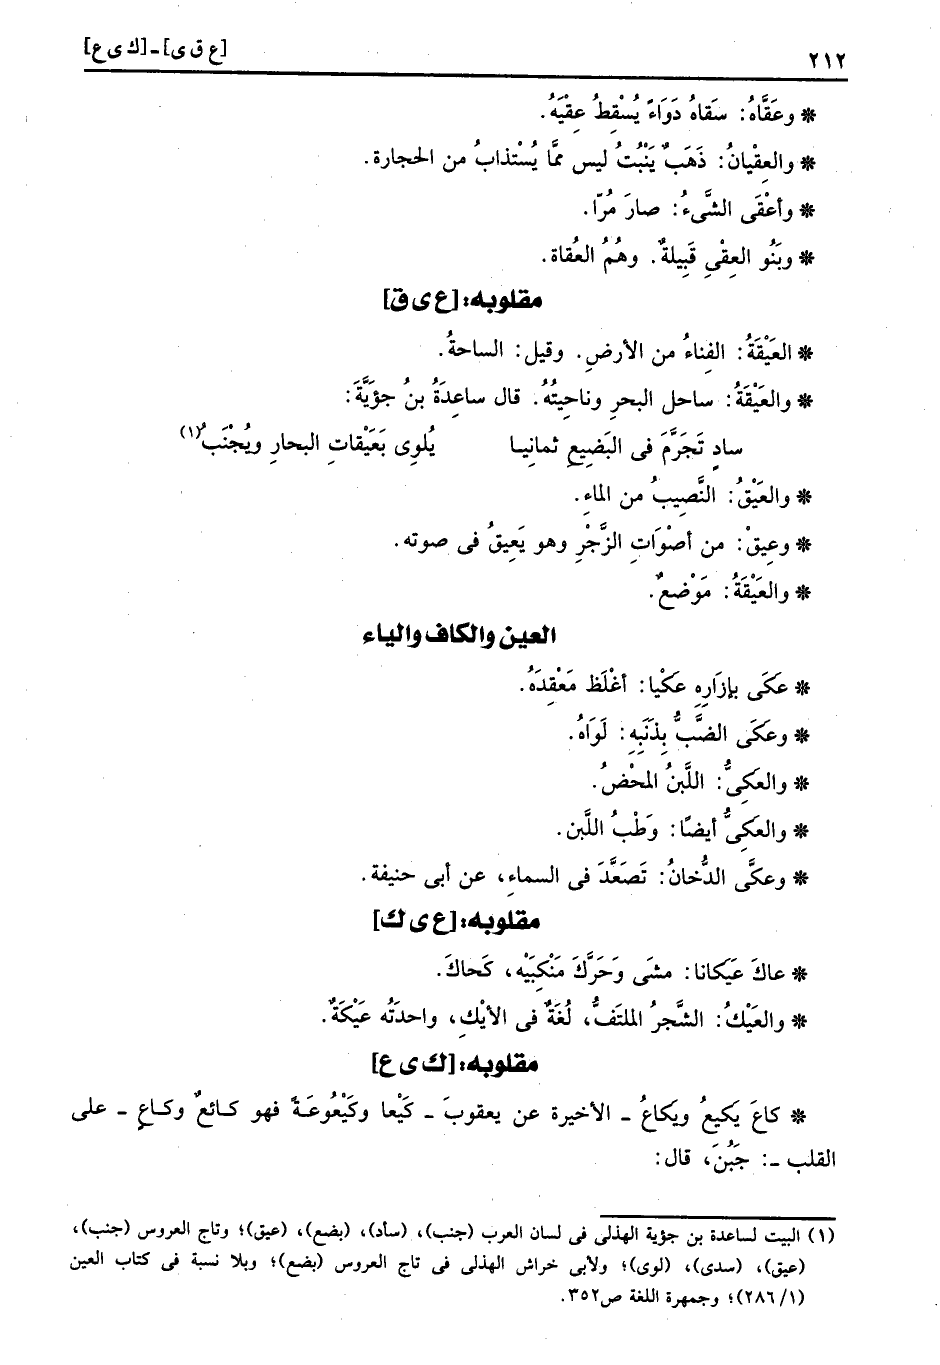 ٢١٢
[ع ق ى] ـ [ك ى ع]
* وعَقَّاهُ: سَقاهُ دَوَاءً يُسْقِطُ عِقْيَهُ.
* والعِقْيانُ: ذَهَبٌ يَنْبُتُ ليس ممَّا يُسْتذابُ من الحجارة.
* وأعْقَى الشَّىءُ: صارَ مُرّا.
* وبَنُو العِقْىِ قَبِيلةٌ. وهُمُ العُقاة.
مقلوبه: [ع ى ق]
* العَيْقَةُ: الفِناءُ من الأرضِ. وقيل: الساحةُ.
* والعَيْقَةُ: ساحل البحرِ وناحيتُهُ. قال ساعِدَةُ بنُ جؤَيَّةَ:
سادٍ تَجَرَّمَ فى البَضِيعِ ثمانِيا يُلوِى بَعَيْقاتِ البحارِ ويُجْنَبُ(١)
* والعَيْقُ: النَّصِيبُ من الماءِ.
* وعِيقْ: من أصْوَاتِ الزَّجْرِ وهو يَعِيقُ فى صوته.
* والعَيْقَةُ: مَوْضعٌ.
العين والكاف والياء
* عكَى بإزَارِهِ عَكْيا: أغْلَظ مَعْقِدَهُ.
* وعكَى الضَّبُّ بِذَنَبِهِ: لَوَاهُ.
* والعَكِىُّ: اللَّبنُ المحْضُ.
* والعكِىُّ أيضًا: وَطْبُ اللَّبن.
* وعكَّى الدُّخانُ: تَصَعَّدَ فى السماءِ، عن أبى حنيفة.
مقلوبه: [ع ى ك]
* عاكَ عَيَكانا: مشَى وَحَرَّكَ مَنْكِبَيْه، كَحاكَ.
* والعَيْكُ: الشَّجرُ الملتَفُّ، لُغَةٌ فى الأيْكِ، واحدَتُه عَيْكَةٌ.
مقلوبه: [ك ى ع]
* كاعَ يَكيعُ ويَكاعُ ـ الأخيرة عن يعقوبَ ـ كَيْعا وكَيْعُوعَـةً فهو كـائعٌ وكـاعٍ ـ على
القلب ـ: جَبُنَ، قال:
(١) البيت لساعدة بن جؤية الهذلى فى لسان العرب (جنب)، (سأد)، (بضع)، (عيق)؛ وتاج العروس (جنب)،
(عيق)، (سدى)، (لوى)؛ ولأبى خراش الهذلى فى تاج العروس (بضع)؛ وبلا نسبة فى كتاب العين
(٢٨٦/١)؛ وجمهرة اللغة ص٣٥٢.